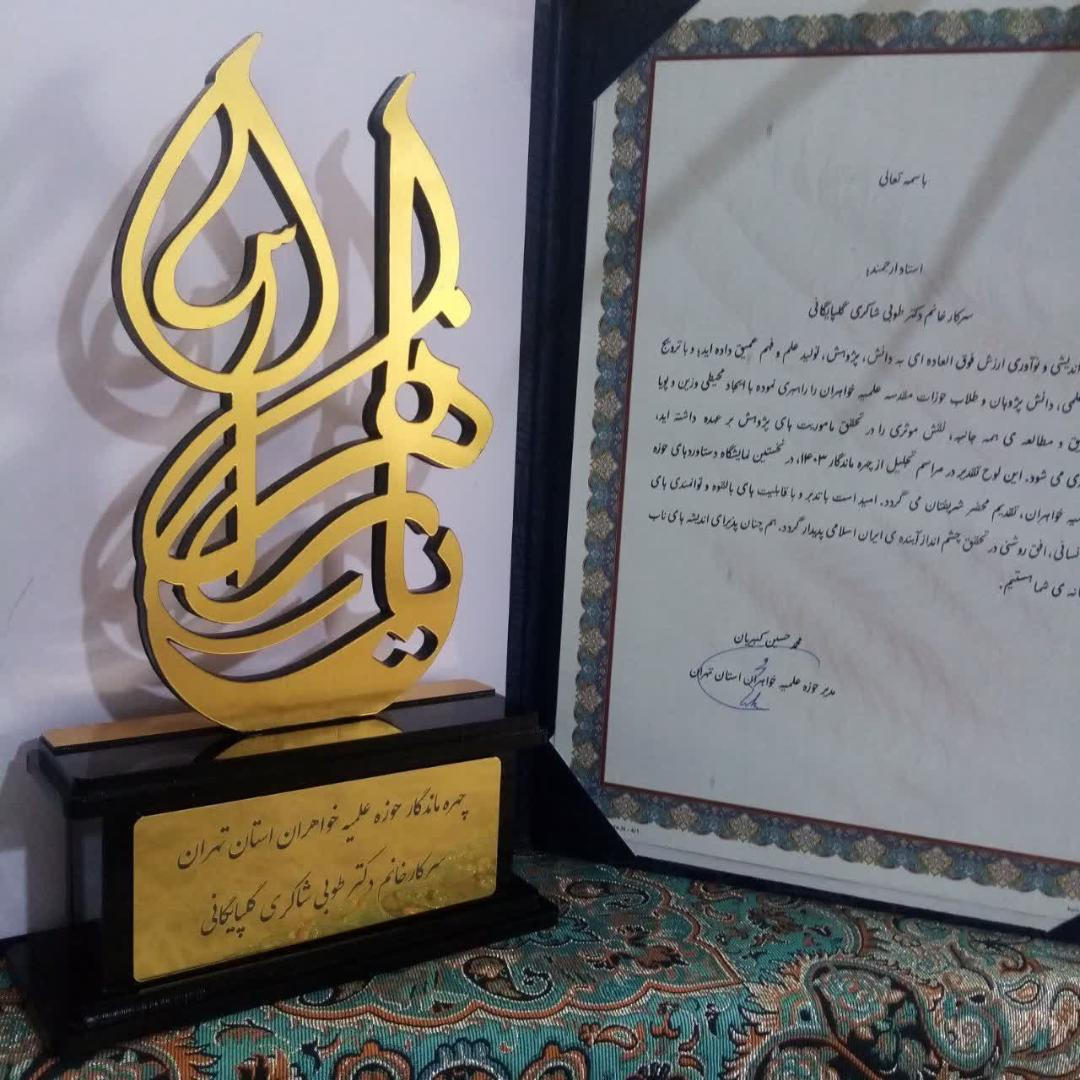 یا زهرا س
چهره ماندگار حوزه علمیه خواهران استان تهران
سرکار خانم دکتر طوبی شاکری گلپایگانی
باسمه تعالی
استاد ارجمند؛
سرکار خانم دکتر طوبی شاکری گلپایگانی
اندیشی و نوآوری ارزش فوق العاده ای به دانش، پژوهش، تولید علم و فهم عمیق داده اید؛ و با ترویج
علمی، دانش پژوهان و طلاب حوزات مقدسه علمیه خواهران را راهبری نموده با ایجاد محیطی وزین و پویا
و مطالعه ی همه جانبه، نقش موثری را در تحقق ماموریت های پژوهش بر عهده داشته اید،
می شود. این لوح تقدیر در مراسم تجلیل از چهره ماندگار ۱۴۰۳، در نخستین نمایشگاه دستاوردهای حوزه
خواهران، تقدیم محضر شریفتان می گردد. امید است با تدبر و با قابلیت های بالقوه و توانمندی های
انسانی، افق روشنی در تحقق چشم انداز آینده ی ایران اسلامی پدیدار گردد. هم چنان پذیرای اندیشه های ناب
ی شما هستیم.
محمد حسین کبیریان
مدیر حوزه علمیه خواهران استان تهران